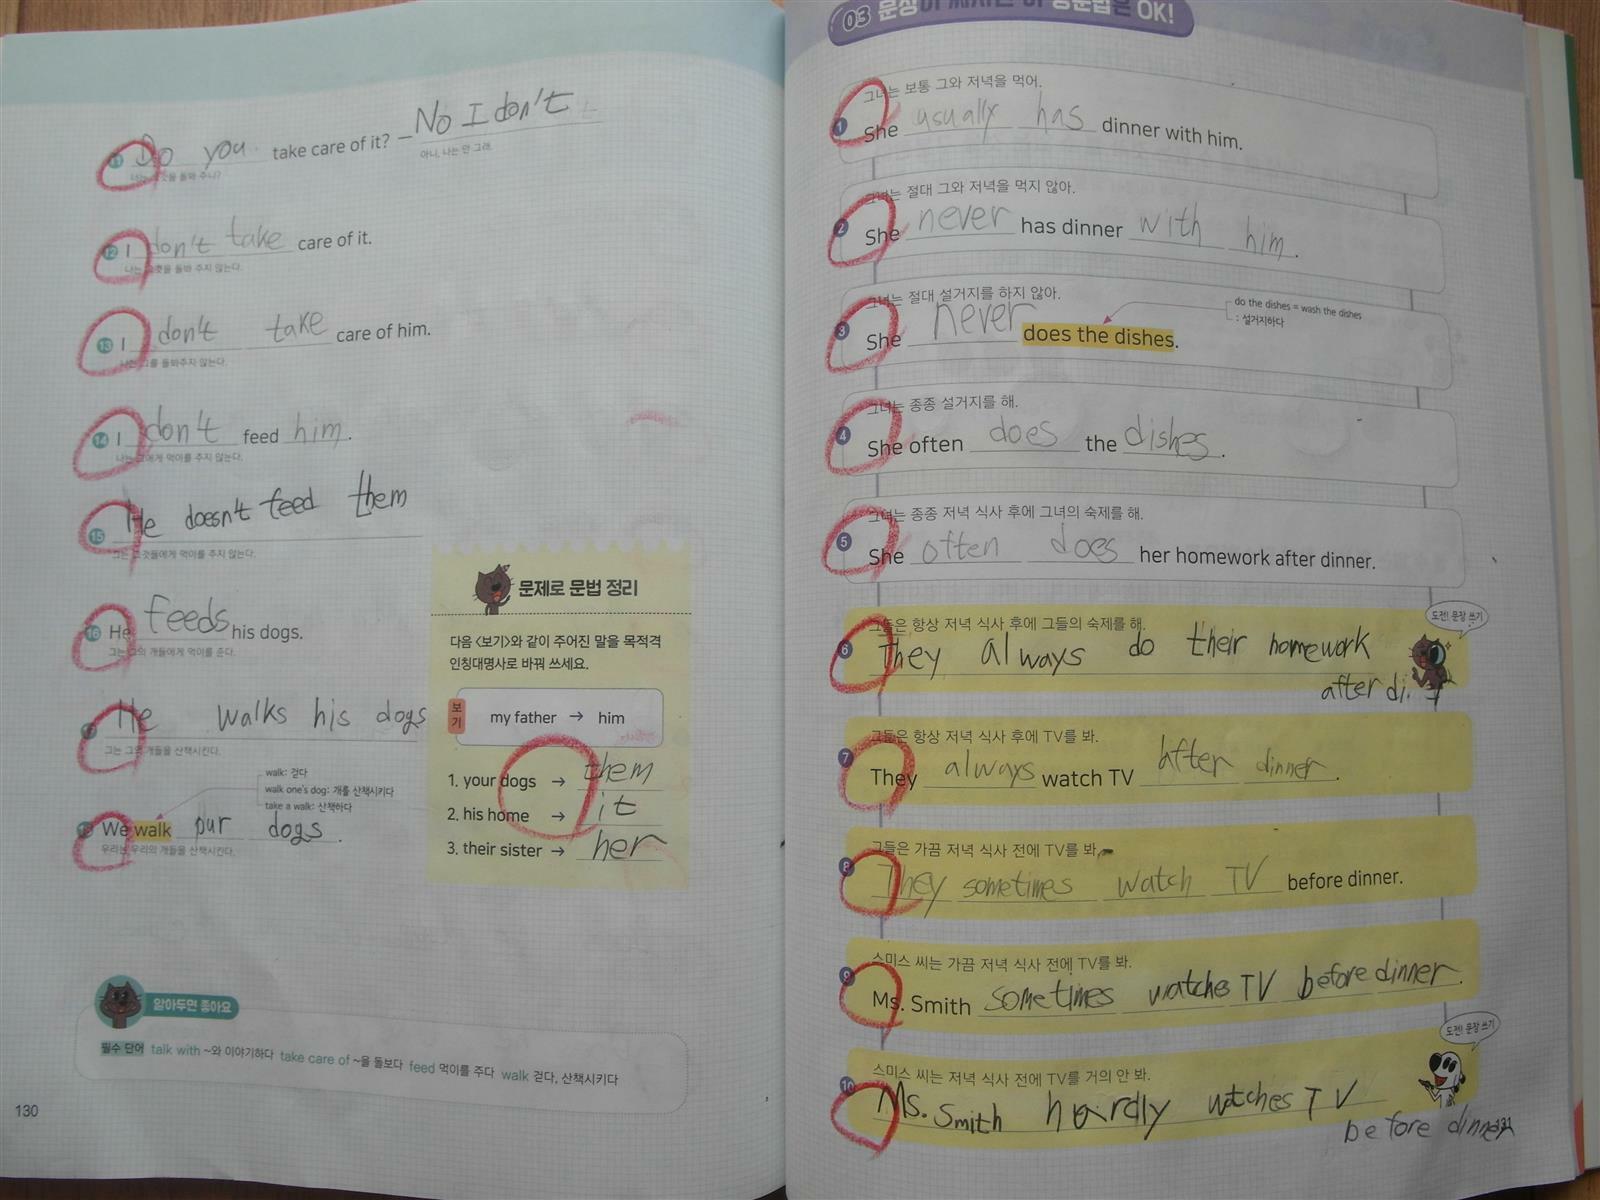 11 Do you take care of it? – No I don't
너는 그것을 돌봐 주니? 아니, 나는 안 그래.
12 I don't take care of it.
나는 그것을 돌봐 주지 않는다.
13 I don't take care of him.
나는 그를 돌봐주지 않는다.
14 I don't feed him.
나는 그에게 먹이를 주지 않는다.
15 He doesn't feed them
그는 그것들에게 먹이를 주지 않는다.
16 He feeds his dogs.
그는 그의 개들에게 먹이를 준다.
He walks his dogs
그는 그의 개들을 산책시킨다.
walk: 걷다
walk one's dog: 개를 산책시키다
take a walk: 산책하다
We walk our dogs.
우리는 우리의 개들을 산책시킨다.
문제로 문법 정리
다음 <보기>와 같이 주어진 말을 목적격
인칭대명사로 바꿔 쓰세요.
보기 my father → him
1. your dogs → them
2. his home → it
3. their sister → her
알아두면 좋아요
필수 단어 talk with ~와 이야기하다 take care of ~을 돌보다 feed 먹이를 주다 walk 걷다, 산책시키다
130
03 OK!
그녀는 보통 그와 저녁을 먹어.
1 She usually has dinner with him.
그녀는 절대 그와 저녁을 먹지 않아.
2 She never has dinner with him.
그녀는 절대 설거지를 하지 않아.
do the dishes = wash the dishes
: 설거지하다
3 She never does the dishes.
그녀는 종종 설거지를 해.
4 She often does the dishes.
그녀는 종종 저녁 식사 후에 그녀의 숙제를 해.
5 She often does her homework after dinner.
도전! 문장 쓰기
그들은 항상 저녁 식사 후에 그들의 숙제를 해.
6 They always do their homework
after di.
그들은 항상 저녁 식사 후에 TV를 봐.
7 They always watch TV after dinner.
그들은 가끔 저녁 식사 전에 TV를 봐.
8 They sometimes watch TV before dinner.
스미스 씨는 가끔 저녁 식사 전에 TV를 봐.
9 Ms. Smith sometimes watches TV before dinner.
도전! 문장 쓰기
스미스 씨는 저녁 식사 전에 TV를 거의 안 봐.
10 Ms. Smith hardly watches TV
before dinner